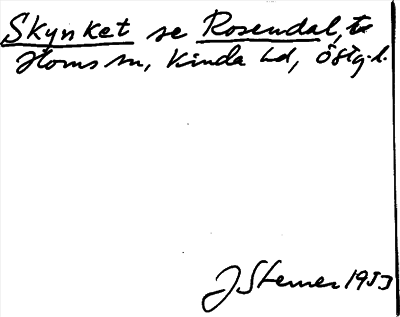 Skynket se Rosendal, t
Horns sn, Kinda hd, Östg. l.
J Sterner 1953